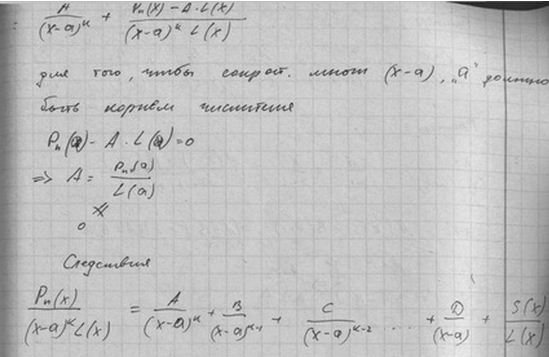 : A/(x-a)^k + (Pn(x) - A·L(x))/((x-a)^k L(x))
для того, чтобы сократ. множ (x-a), "a" должно
быть корнем числителя
Pn(a) - A·L(a) = 0
=> A = Pn(a)/L(a)
≠ 0
Следствия
Pn(x)/((x-a)^k L(x)) = A/(x-a)^k + B/(x-a)^(k-1) + C/(x-a)^(k-2) ... + D/(x-a) + S(x)/L(x)